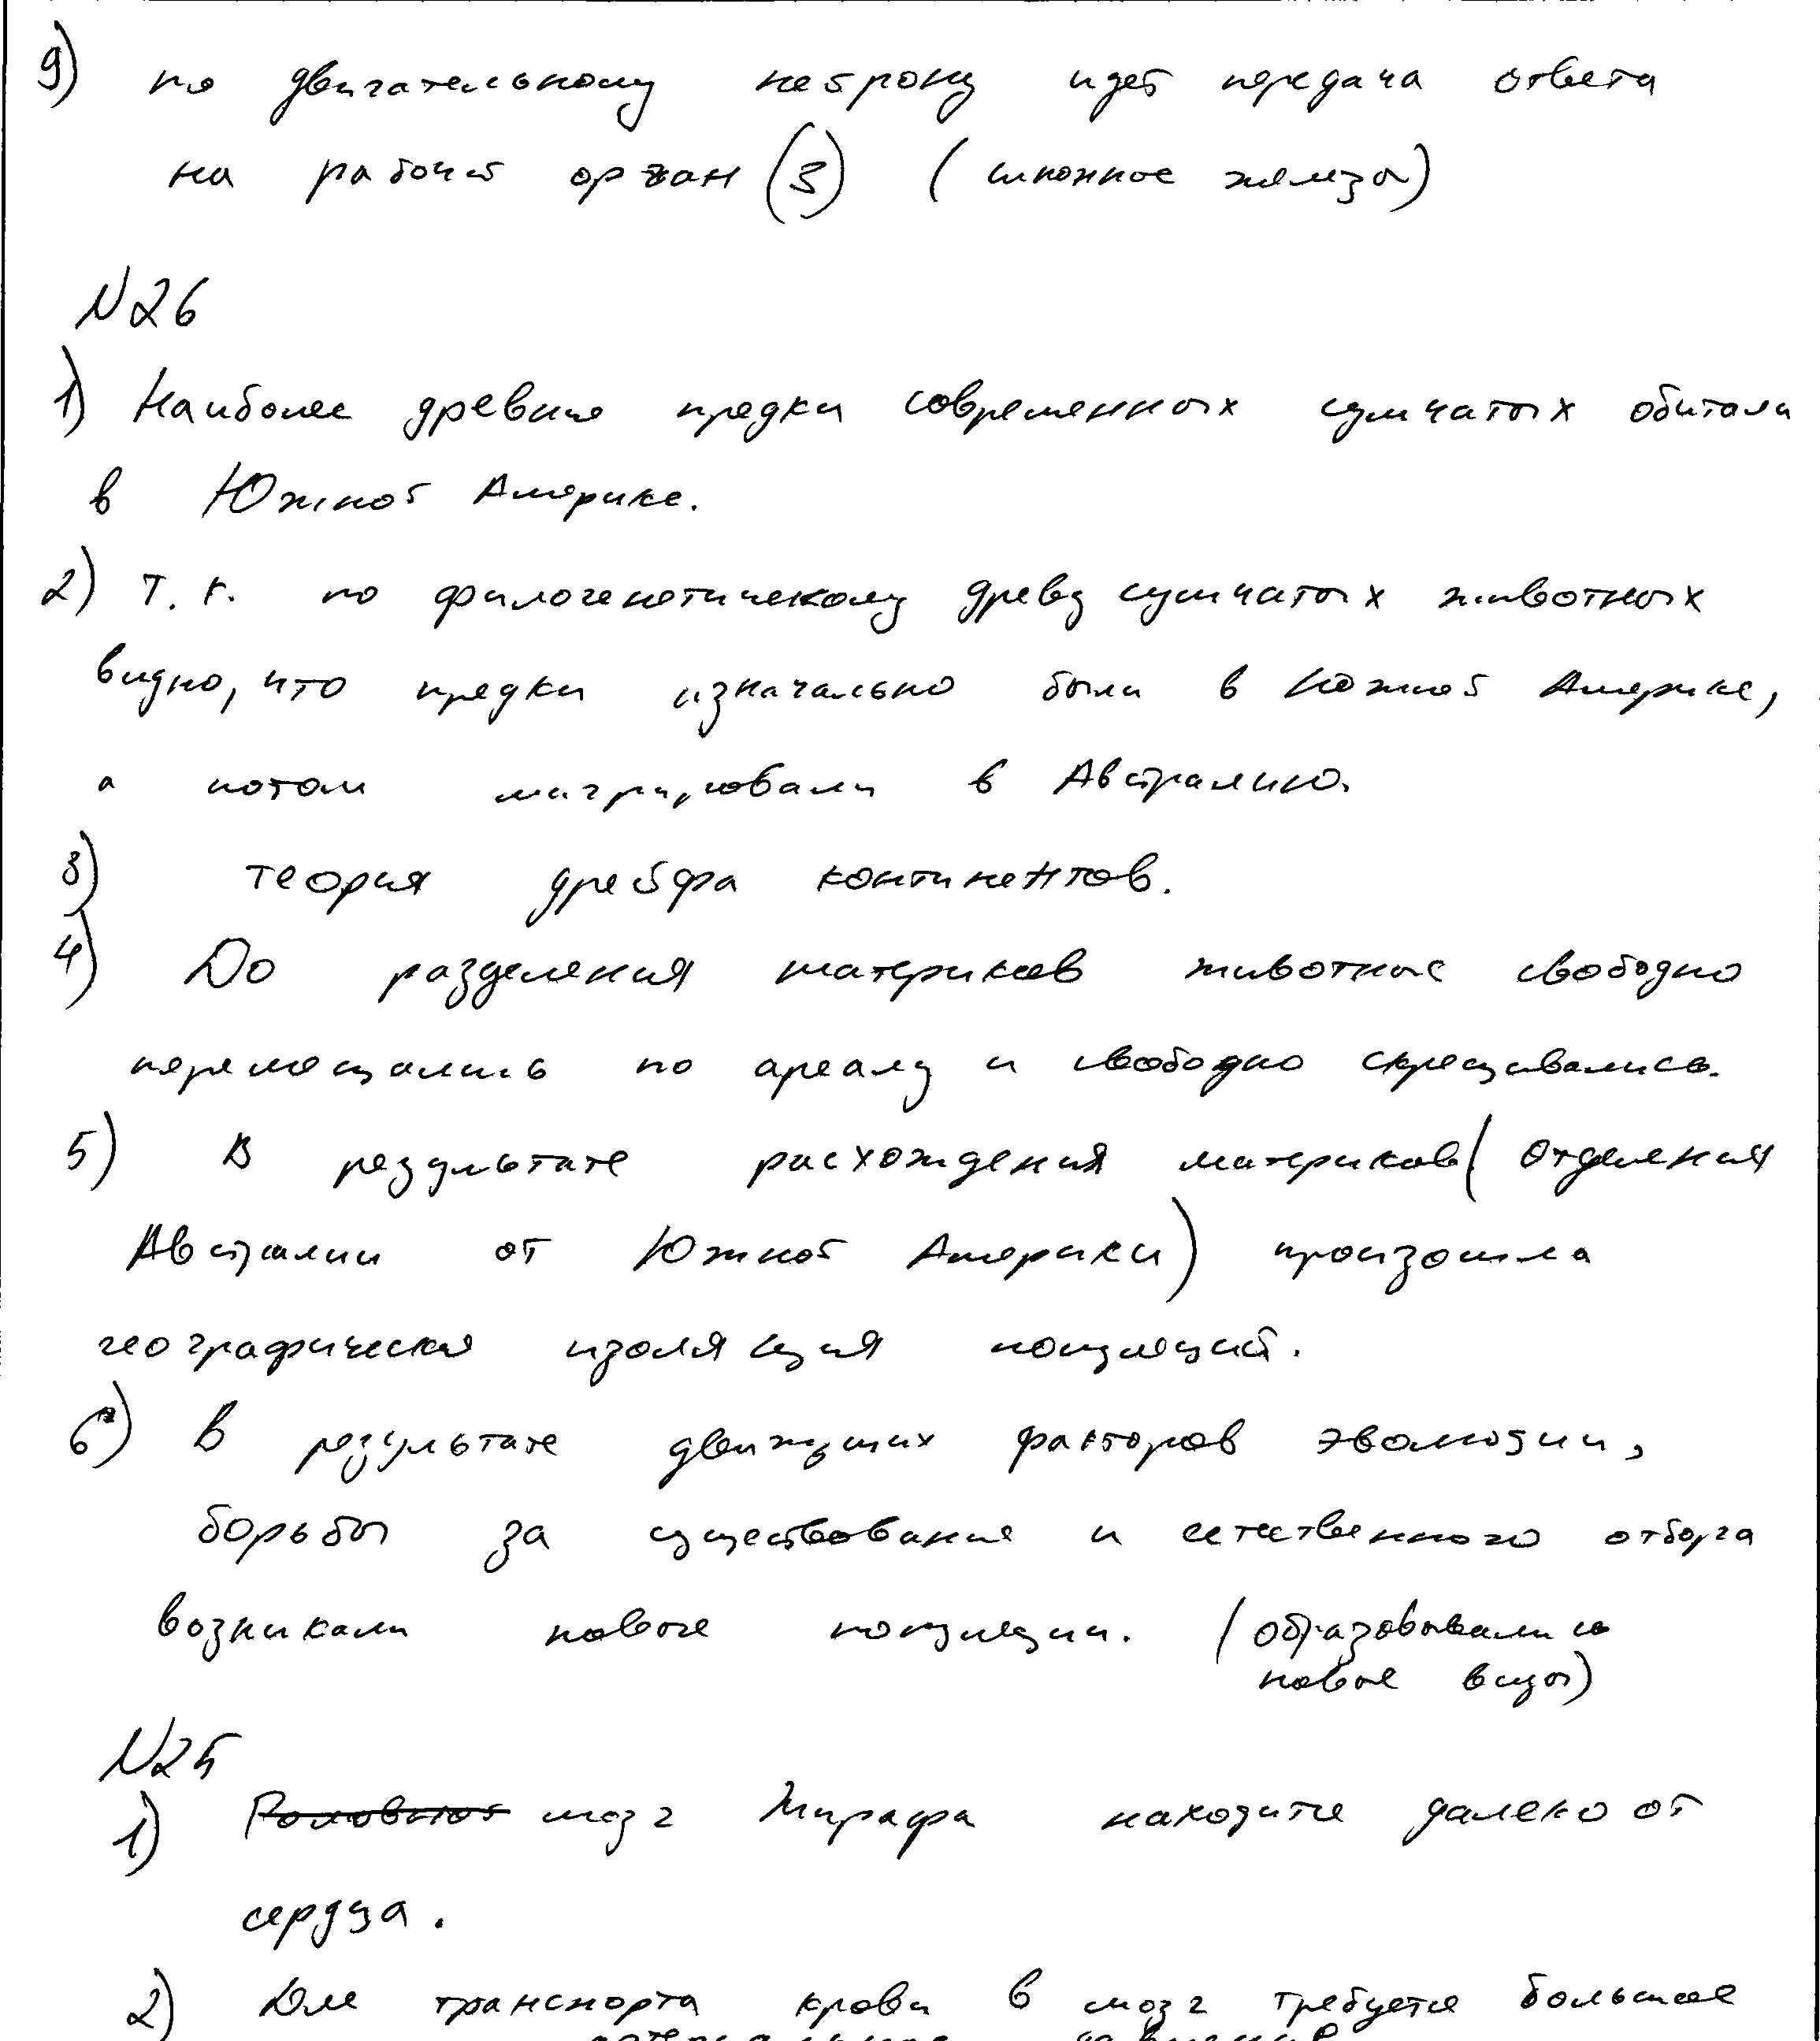 9) по двигательному нейрону идет передача ответа
на рабочий орган (3) (слюнные железы)
N26
1) Наиболее древние предки современных сумчатых обитали
в Южной Америке.
2) Т.к. по филогенетическому древу сумчатых животных
видно, что предки изначально были в Южной Америке,
а потом мигрировали в Австралию.
3) теория дрейфа континентов.
4) До разделения материков животные свободно
перемещались по ареалу и свободно скрещивались.
5) В результате расхождения материков (отделения
Австралии от Южной Америки) произошла
географическая изоляция популяций.
6) В результате движущих факторов эволюции,
борьбы за существование и естественного отбора
возникали новые популяции. (образовывались
новые виды)
N25
1) Головной мозг Жирафа находится далеко от
сердца.
2) Для транспорта крови в мозг требуется большое
давление